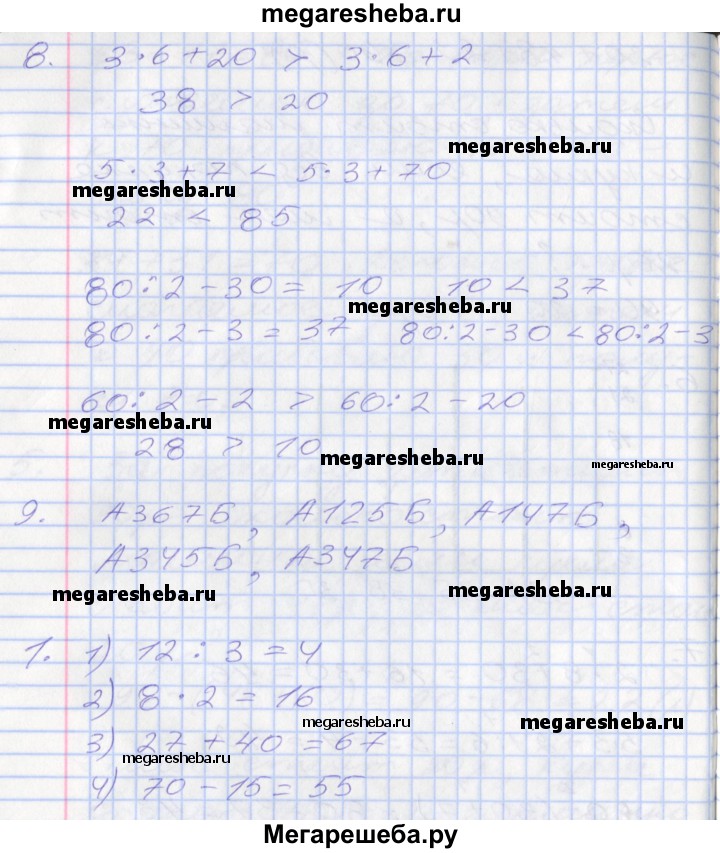 megaresheba.ru
8. 3·6+20 > 3·6+2
38 > 20
megaresheba.ru
5·3+7 < 5·3+70
megaresheba.ru
22 < 85
80:2-30= 10 10 < 37
megaresheba.ru
80:2-3=37 80:2-30<80:2-3
60:2-2 > 60:2-20
megaresheba.ru
28 > 10
megaresheba.ru
megaresheba.ru
9. А367Б, А125Б, А147Б,
А345Б, А347Б
megaresheba.ru
megaresheba.ru
1. 1) 12:3=4
2) 8·2=16
megaresheba.ru
megaresheba.ru
3) 27+40=67
megaresheba.ru
4) 70-15=55
Мегарешеба.ру